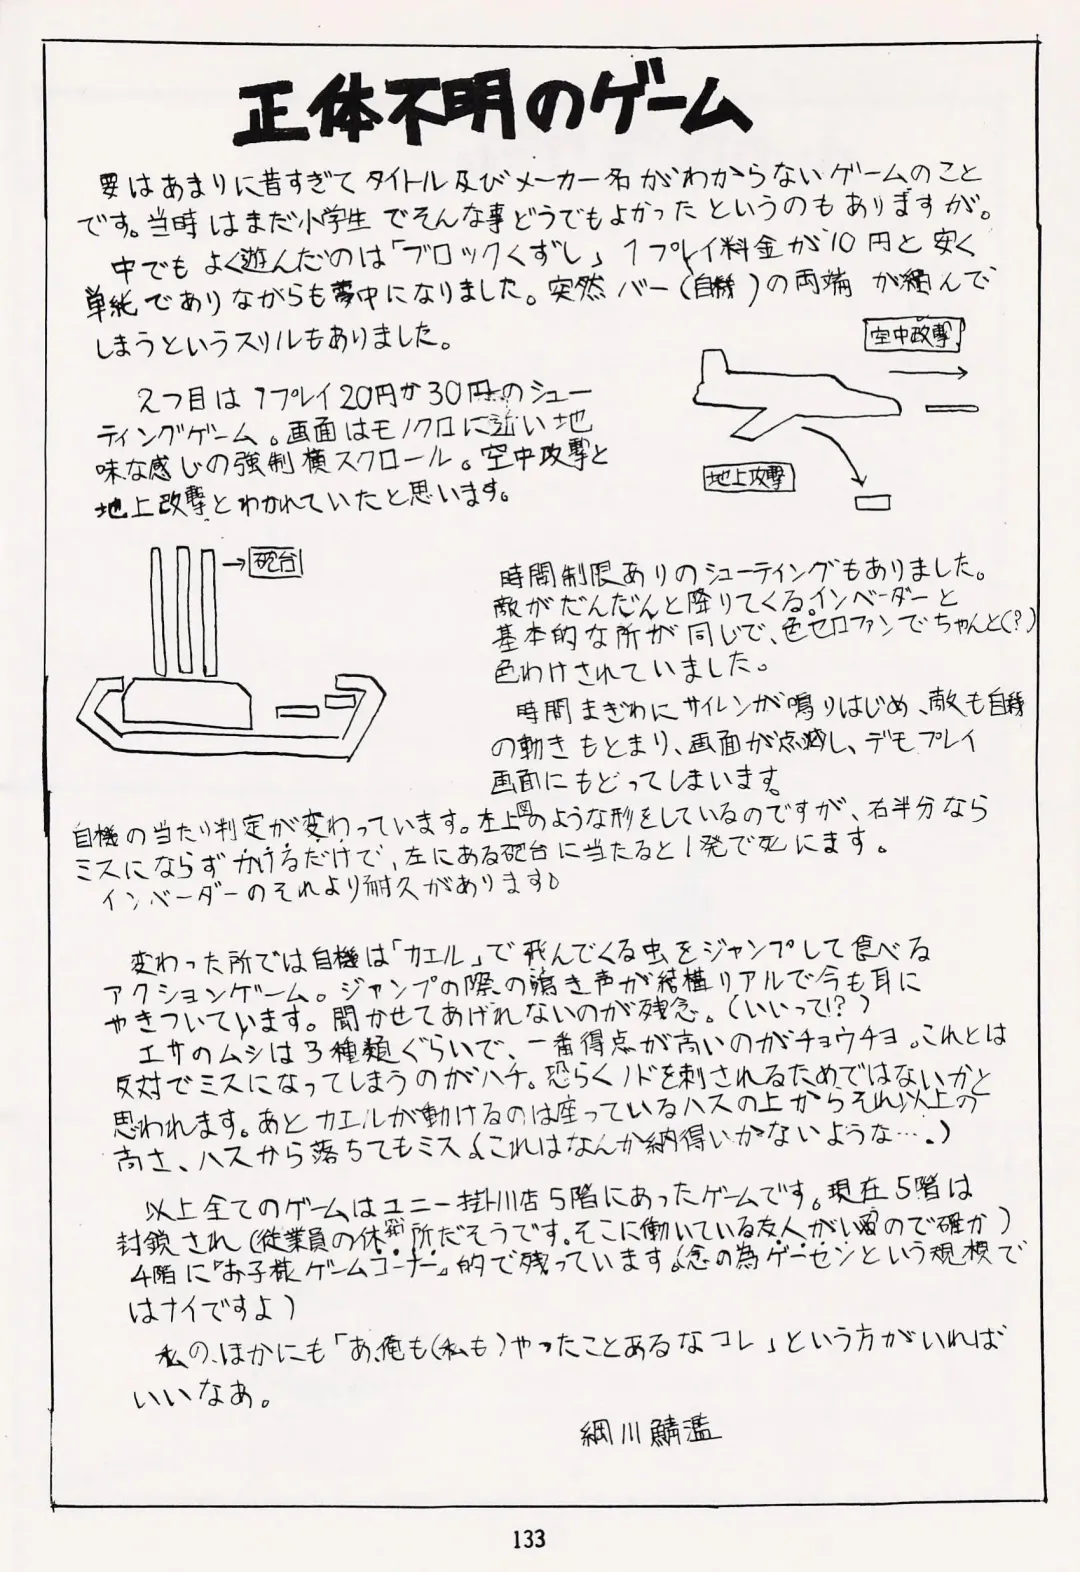 正体不明のゲーム
要はあまりに昔すぎてタイトル及びメーカー名がわからないゲームのこと
です。当時はまだ小学生でそんな事どうでもよかったというのもありますが。
中でもよく遊んだのは「ブロックくずし」1プレイ料金が10円と安く
単純でありながらも夢中になりました。突然バー(自機)の両端が縮んで
しまうというスリルもありました。
空中攻撃
2つ目は1プレイ20円か30円のシュー
ティングゲーム。画面はモノクロに近い地
味な感じの強制横スクロール。空中攻撃と
地上攻撃とわかれていたと思います。
地上攻撃
砲台
時間制限ありのシューティングもありました。
敵がだんだんと降りてくるインベーダーと
基本的な所が同じで、色セロファンでちゃんと(?)
色わけされていました。
時間まぎわにサイレンが鳴りはじめ、敵も自機
の動きもとまり、画面が点滅し、デモプレイ
画面にもどってしまいます。
自機の当たり判定が変わっています。左上図のような形をしているのですが、右半分なら
ミスにならずかけるだけで、左にある砲台に当たると1発で死にます。
インベーダーのそれより耐久があります。
変わった所では自機は「カエル」で飛んでくる虫をジャンプして食べる
アクションゲーム。ジャンプの際の鳴き声が結構リアルで今も耳に
やきついています。聞かせてあげれないのが残念。(いいって!?)
エサのムシは3種類ぐらいで、一番得点が高いのがチョウチョ。これとは
反対でミスになってしまうのがハチ。恐らくノドを刺されるためではないかと
思われます。あとカエルが動けるのは座っているハスの上からそれ以上の
高さ、ハスから落ちてもミス。(これはなんか納得いかないような….)
以上全てのゲームはユニー掛川店5階にあったゲームです。現在5階は
封鎖され(従業員の休憩所だそうです。そこに働いている友人がい
るので確か)
4階に『お子様ゲームコーナー』的で残っています。(念の為ゲーセンという規模で
はナイですよ)
私のほかにも「あ、俺も(私も)やったことあるなコレ」という方がいれば
いいなあ。
綱川鯖濫
133